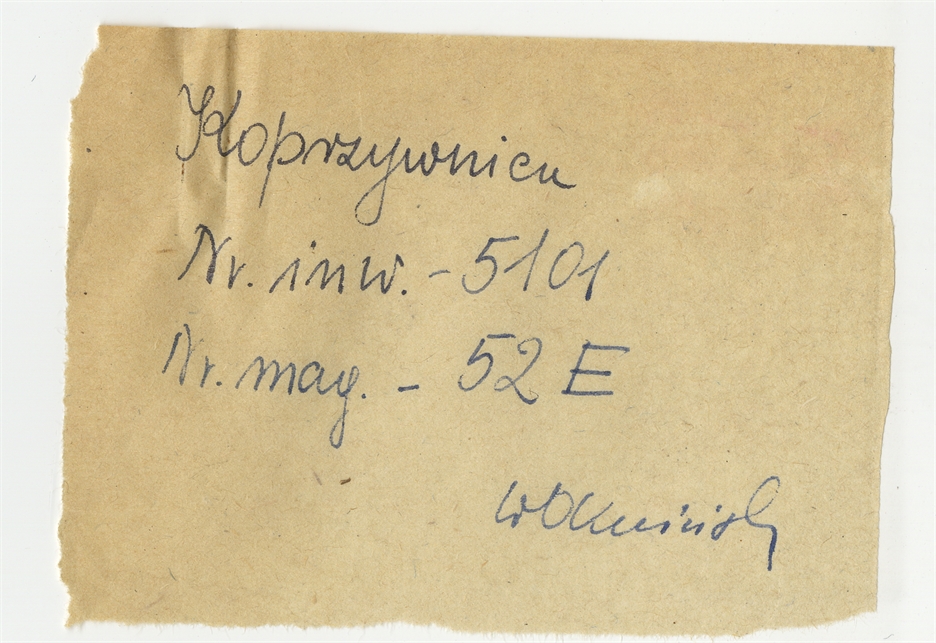 Koprzywnica
Nr. inw. - 5101
Nr. mag. - 52 E